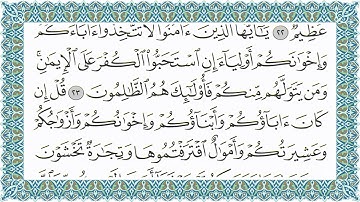 عَظِيمٌ ٢٢ يَٰٓأَيُّهَا ٱلَّذِينَ ءَامَنُوا۟ لَا تَتَّخِذُوٓا۟ ءَابَآءَكُمْ
وَإِخْوَٰنَكُمْ أَوْلِيَآءَ إِنِ ٱسْتَحَبُّوا۟ ٱلْكُفْرَ عَلَى ٱلْإِيمَٰنِ ۚ
وَمَن يَتَوَلَّهُم مِّنكُمْ فَأُو۟لَٰٓئِكَ هُمُ ٱلظَّٰلِمُونَ ٢٣ قُلْ إِن
كَانَ ءَابَآؤُكُمْ وَأَبْنَآؤُكُمْ وَإِخْوَٰنُكُمْ وَأَزْوَٰجُكُمْ
وَعَشِيرَتُكُمْ وَأَمْوَٰلٌ ٱقْتَرَفْتُمُوهَا وَتِجَٰرَةٌ تَخْشَوْنَ